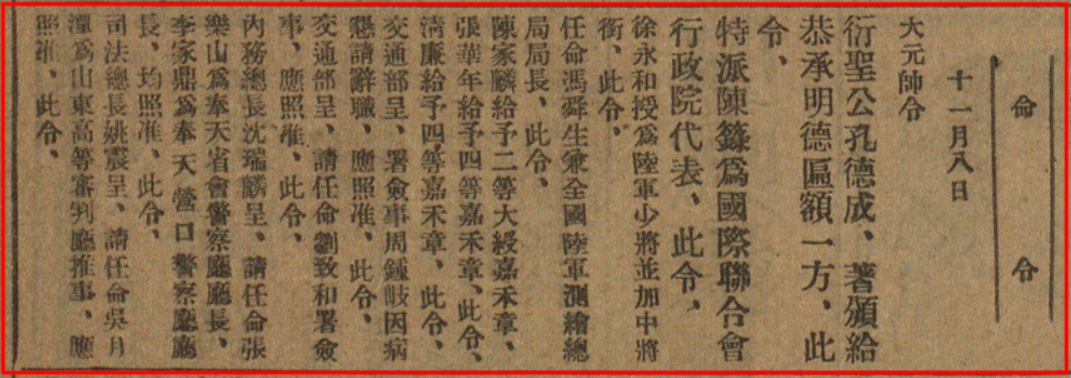 命令
十一月八日
大元帥令
衍聖公孔德成、著頒給
恭承明德匾額一方、此
令、
特派陳籙爲國際聯合會
行政院代表、此令、
徐永和授爲陸軍少將並加中將
銜、此令、
任命馮舜生兼全國陸軍測繪總
局局長、此令、
陳家麟給予二等大綬嘉禾章、
張華年給予四等嘉禾章、此令、
淸廉給予四等嘉禾章、此令、
交通部呈、署僉事周鍾岐因病
懇請辭職、應照准、此令、
交通部呈、請任命劉致和署僉
事、應照准、此令、
內務總長沈瑞麟呈、請任命張
樂山爲奉天省會警察廳廳長、
李家鼎爲奉天營口警察廳廳
長、均照准、此令、
司法總長姚震呈、請任命吳月
爲山東高等審判廳推事、應
照准、此令、